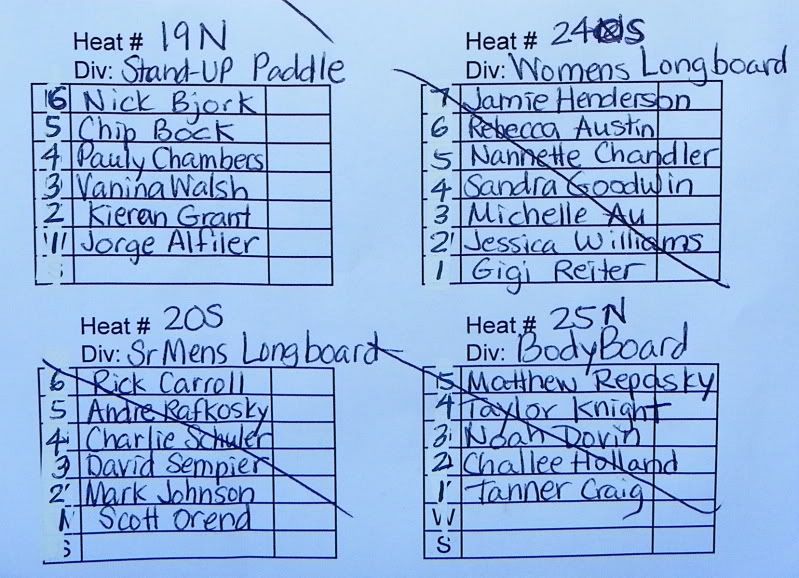 Heat # 19N
Div: Stand-UP Paddle
6 Nick Bjork
5 Chip Bock
4 Pauly Chambers
3 Vanina Walsh
2 Kieran Grant
1 Jorge Alfiler
Heat # 24 S
Div: Womens Longboard
7 Jamie Henderson
6 Rebecca Austin
5 Nannette Chandler
4 Sandra Goodwin
3 Michelle Au
2 Jessica Williams
1 Gigi Reiter
Heat # 20S
Div: Sr Mens Longboard
6 Rick Carroll
5 Andre Rafkosky
4 Charlie Schuler
3 David Sempier
2 Mark Johnson
Scott Orend
S
Heat # 25N
Div: BodyBoard
5 Matthew Repasky
4 Taylor Knight
3 Noah Dovin
2 Challee Holland
1 Tanner Craig
W
S